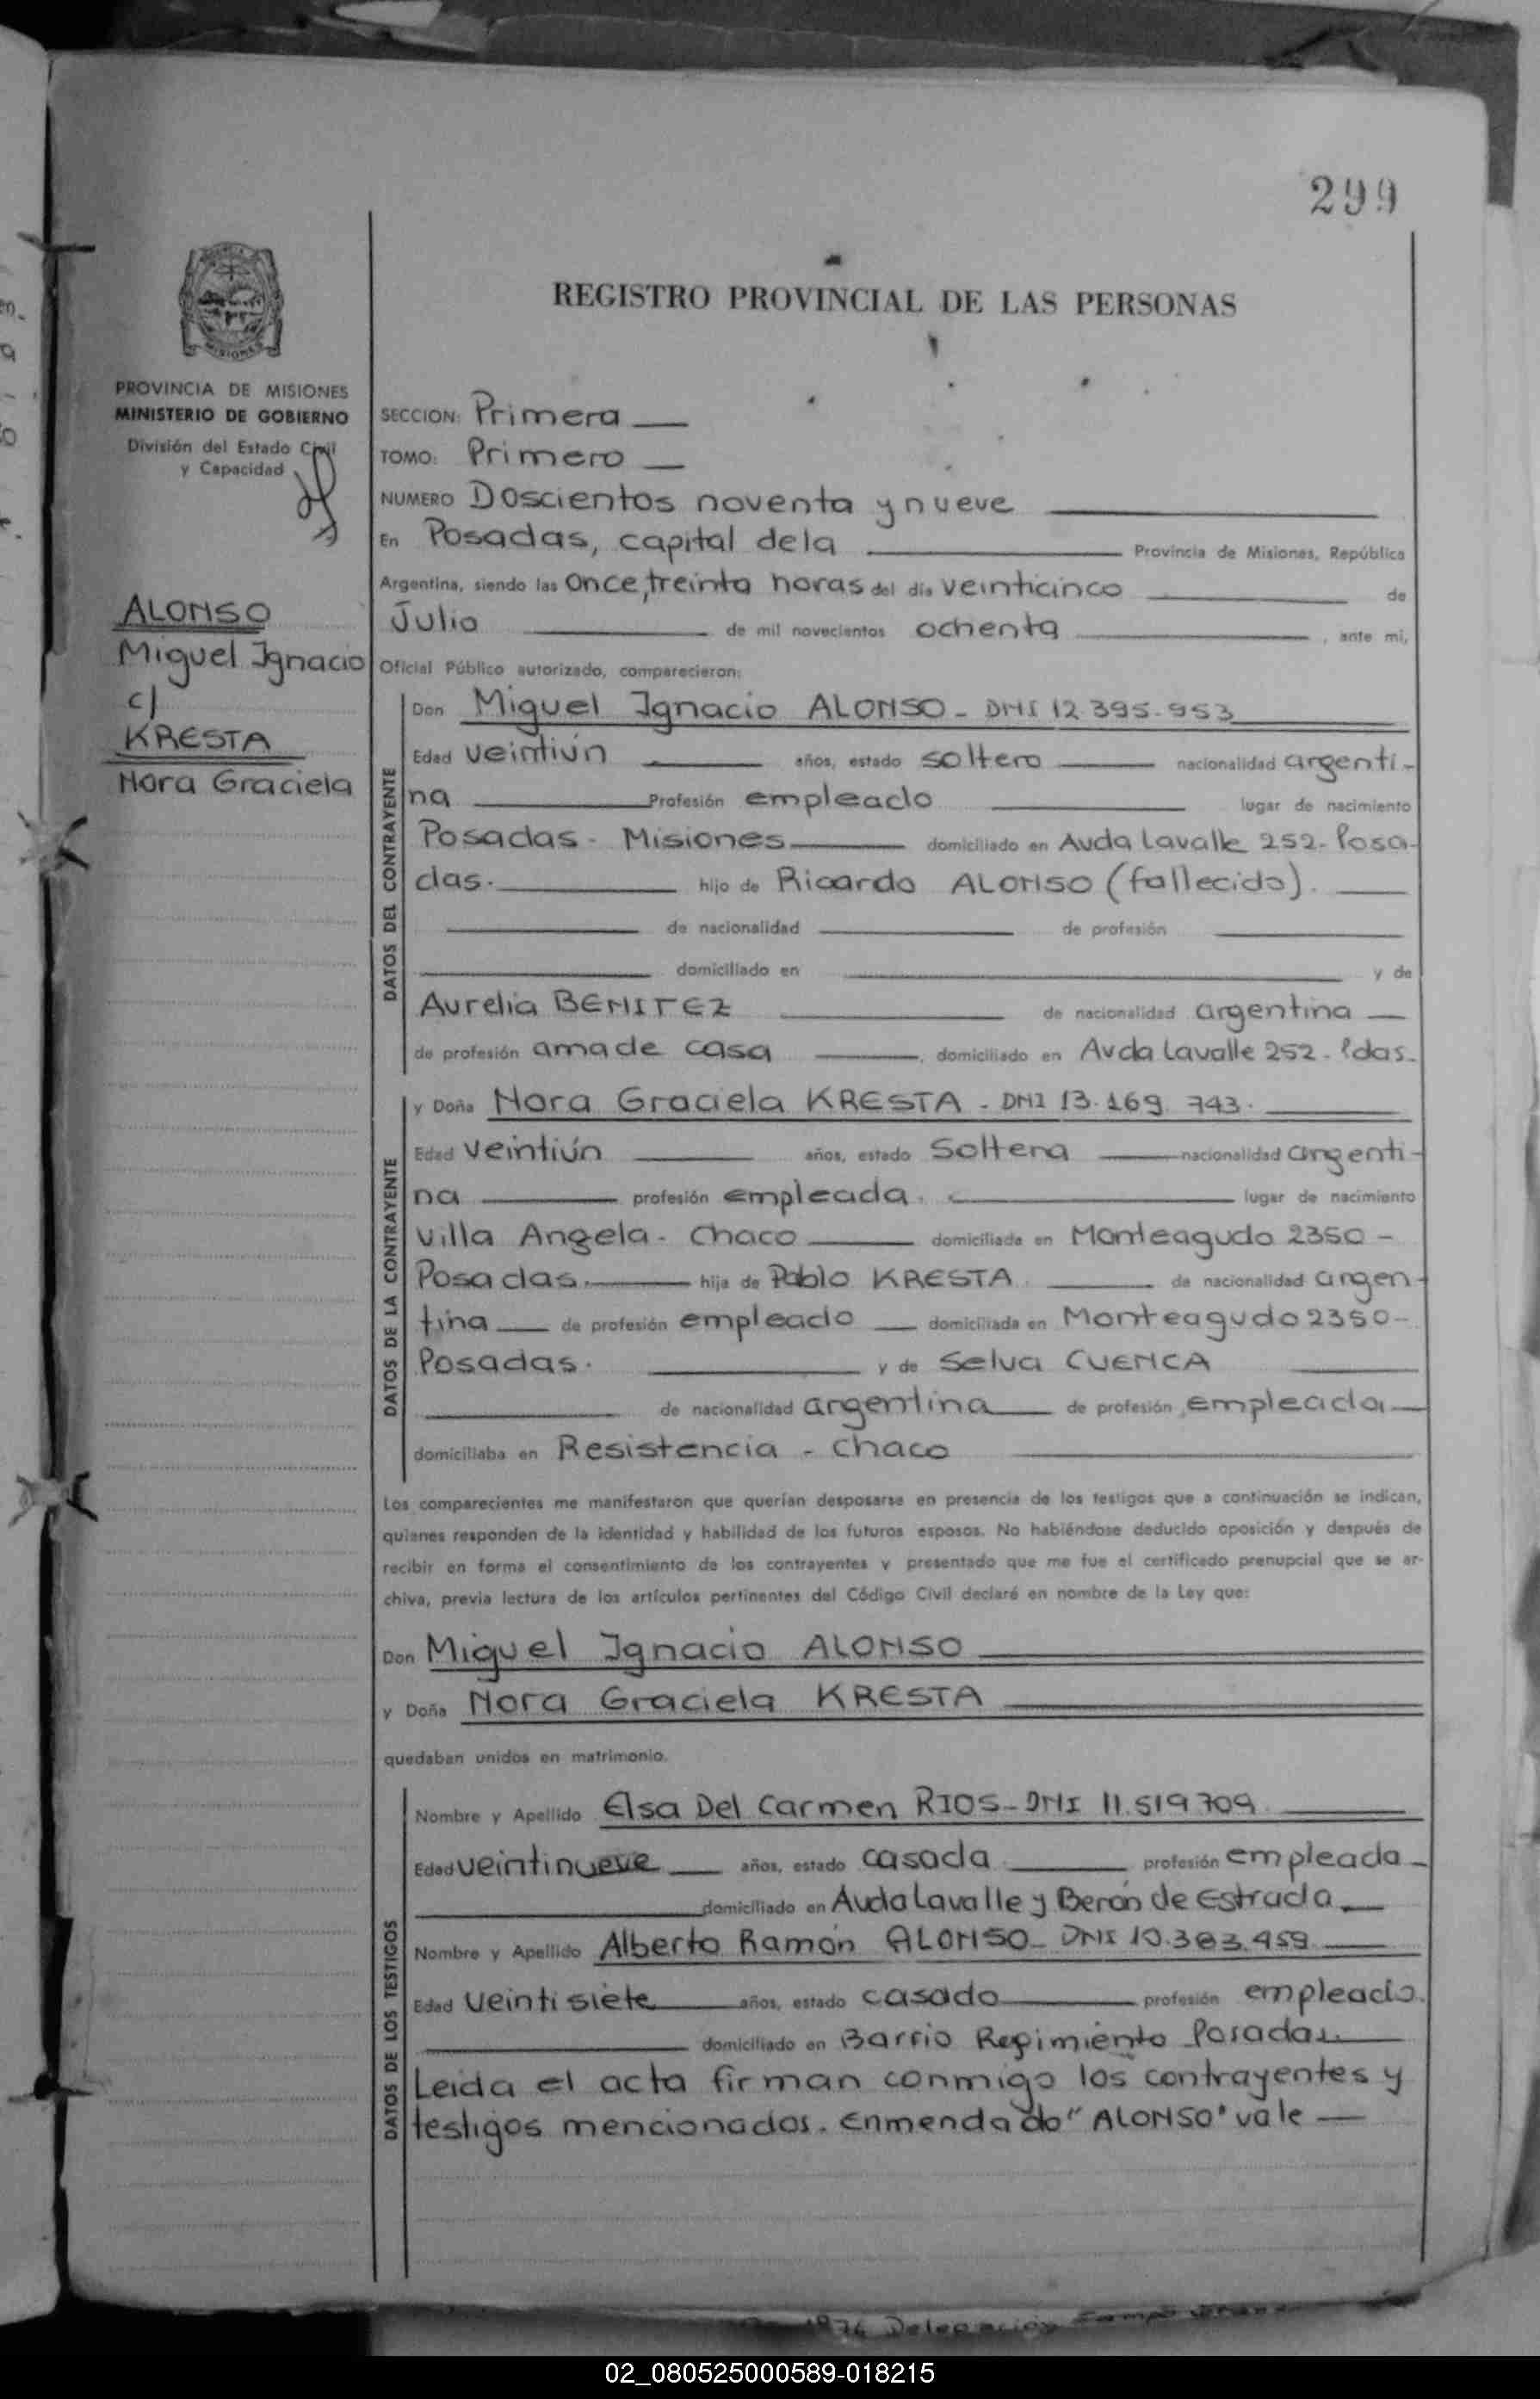 299
REGISTRO PROVINCIAL DE LAS PERSONAS
MISIONES
PROVINCIA DE MISIONES
MINISTERIO DE GOBIERNO
División del Estado Civil
y Capacidad
ALONSO
Miguel Ignacio
c/
KRESTA
Nora Graciela
SECCION: Primera
TOMO: Primero
NUMERO Doscientos noventa y nueve
En Posadas, capital de la Provincia de Misiones, República
Argentina, siendo las once, treinta horas del día veinticinco de
Julio de mil novecientos ochenta, ante mi,
Oficial Público autorizado, comparecieron:
DATOS DEL CONTRAYENTE
Don Miguel Ignacio ALONSO - DNI 12.395.953
Edad veintiún años, estado soltero nacionalidad argenti-
na Profesión empleado lugar de nacimiento
Posadas - Misiones domiciliado en Avda Lavalle 252 - Posa-
das. hijo de Ricardo ALONSO (fallecido).
de nacionalidad de profesión
domiciliado en y de
Aurelia BENITEZ de nacionalidad argentina
de profesión ama de casa, domiciliado en Avda Lavalle 252 - Pdas.
DATOS DE LA CONTRAYENTE
y Doña Nora Graciela KRESTA - DNI 13.169.743.
Edad veintiún años, estado soltera nacionalidad argenti-
na profesión empleada. lugar de nacimiento
Villa Angela - Chaco domiciliada en Monteagudo 2350 -
Posadas. hija de Pablo KRESTA de nacionalidad argen-
tina de profesión empleado domiciliada en Monteagudo 2350 -
Posadas. y de Selva CUENCA
de nacionalidad argentina de profesión empleada
domiciliaba en Resistencia - Chaco
Los comparecientes me manifestaron que querían desposarse en presencia de los testigos que a continuación se indican,
quienes responden de la identidad y habilidad de los futuros esposos. No habiéndose deducido oposición y después de
recibir en forma el consentimiento de los contrayentes y presentado que me fue el certificado prenupcial que se ar-
chiva, previa lectura de los artículos pertinentes del Código Civil declaré en nombre de la Ley que:
Don Miguel Ignacio ALONSO
y Doña Nora Graciela KRESTA
quedaban unidos en matrimonio.
DATOS DE LOS TESTIGOS
Nombre y Apellido Elsa Del Carmen RIOS - DNI 11.519.709
Edad veintinueve años, estado casada profesión empleada
domiciliado en Avda Lavalle y Berón de Estrada
Nombre y Apellido Alberto Ramón ALONSO - DNI 10.383.459
Edad veintisiete años, estado casado profesión empleado.
domiciliado en Barrio Regimiento Posadas.
Leida el acta firman conmigo los contrayentes y
testigos mencionados. Enmendado "ALONSO" vale
1974 Delegación Campo
02_080525000589-018215